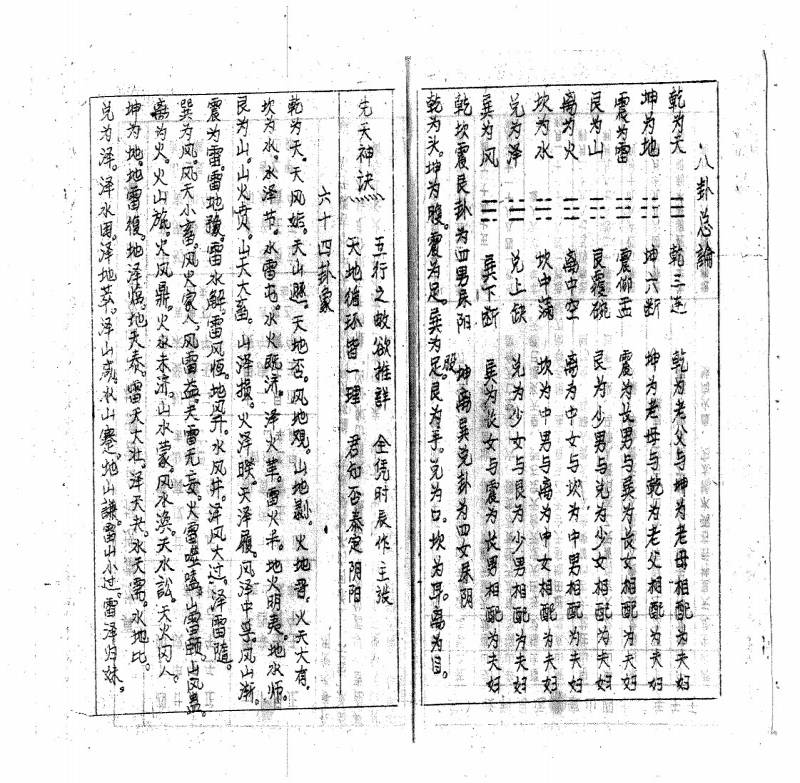 八卦总論
乾为天 ☰ 乾三连 乾为老父与坤为老母相配为夫妇
坤为地 ☷ 坤六断 坤为老母与乾为老父相配为夫妇
震为雷 ☳ 震仰盂 震为长男与巽为长女相配为夫妇
艮为山 ☶ 艮覆碗 艮为少男与兑为少女相配为夫妇
离为火 ☲ 离中空 离为中女与坎为中男相配为夫妇
坎为水 ☵ 坎中满 坎为中男与离为中女相配为夫妇
兑为泽 ☱ 兑上缺 兑为少女与艮为少男相配为夫妇
巽为风 ☴ 巽下断 巽为长女与震为长男相配为夫妇
乾坎震艮卦为四男属阳 坤离巽兑卦为四女属阴
乾为头。坤为腹。震为足。巽为足。股。艮为手。兑为口。坎为耳。离为目。
先天神决
五行之敢欲推詳 全凭时辰作主張
天地循环皆一理 君向否泰定阴阳
六十四卦象
乾为天。天风姤。天山遯。天地否。风地观。山地剥。火地晋。火天大有。
坎为水。水泽节。水雷屯。水火既济。泽火革。雷火丰。地火明夷。地水师。
艮为山。山火贲。山天大畜。山泽損。火泽睽。天泽履。风泽中孚。风山漸。
震为雷。雷地豫。雷水解。雷风恒。地风升。水风井。泽风大过。泽雷隨。
巽为风。风天小畜。风火家人。风雷益。天雷无妄。火雷噬嗑。山雷頤。山风蛊。
离为火。火山旅。火风鼎。火水未济。山水蒙。风水涣。天水訟。天火同人。
坤为地。地雷復。地泽临。地天泰。雷天大壮。泽天夬。水天需。水地比。
兑为泽。泽水困。泽地萃。泽山咸。水山蹇。地山謙。雷山小过。雷泽归妹。